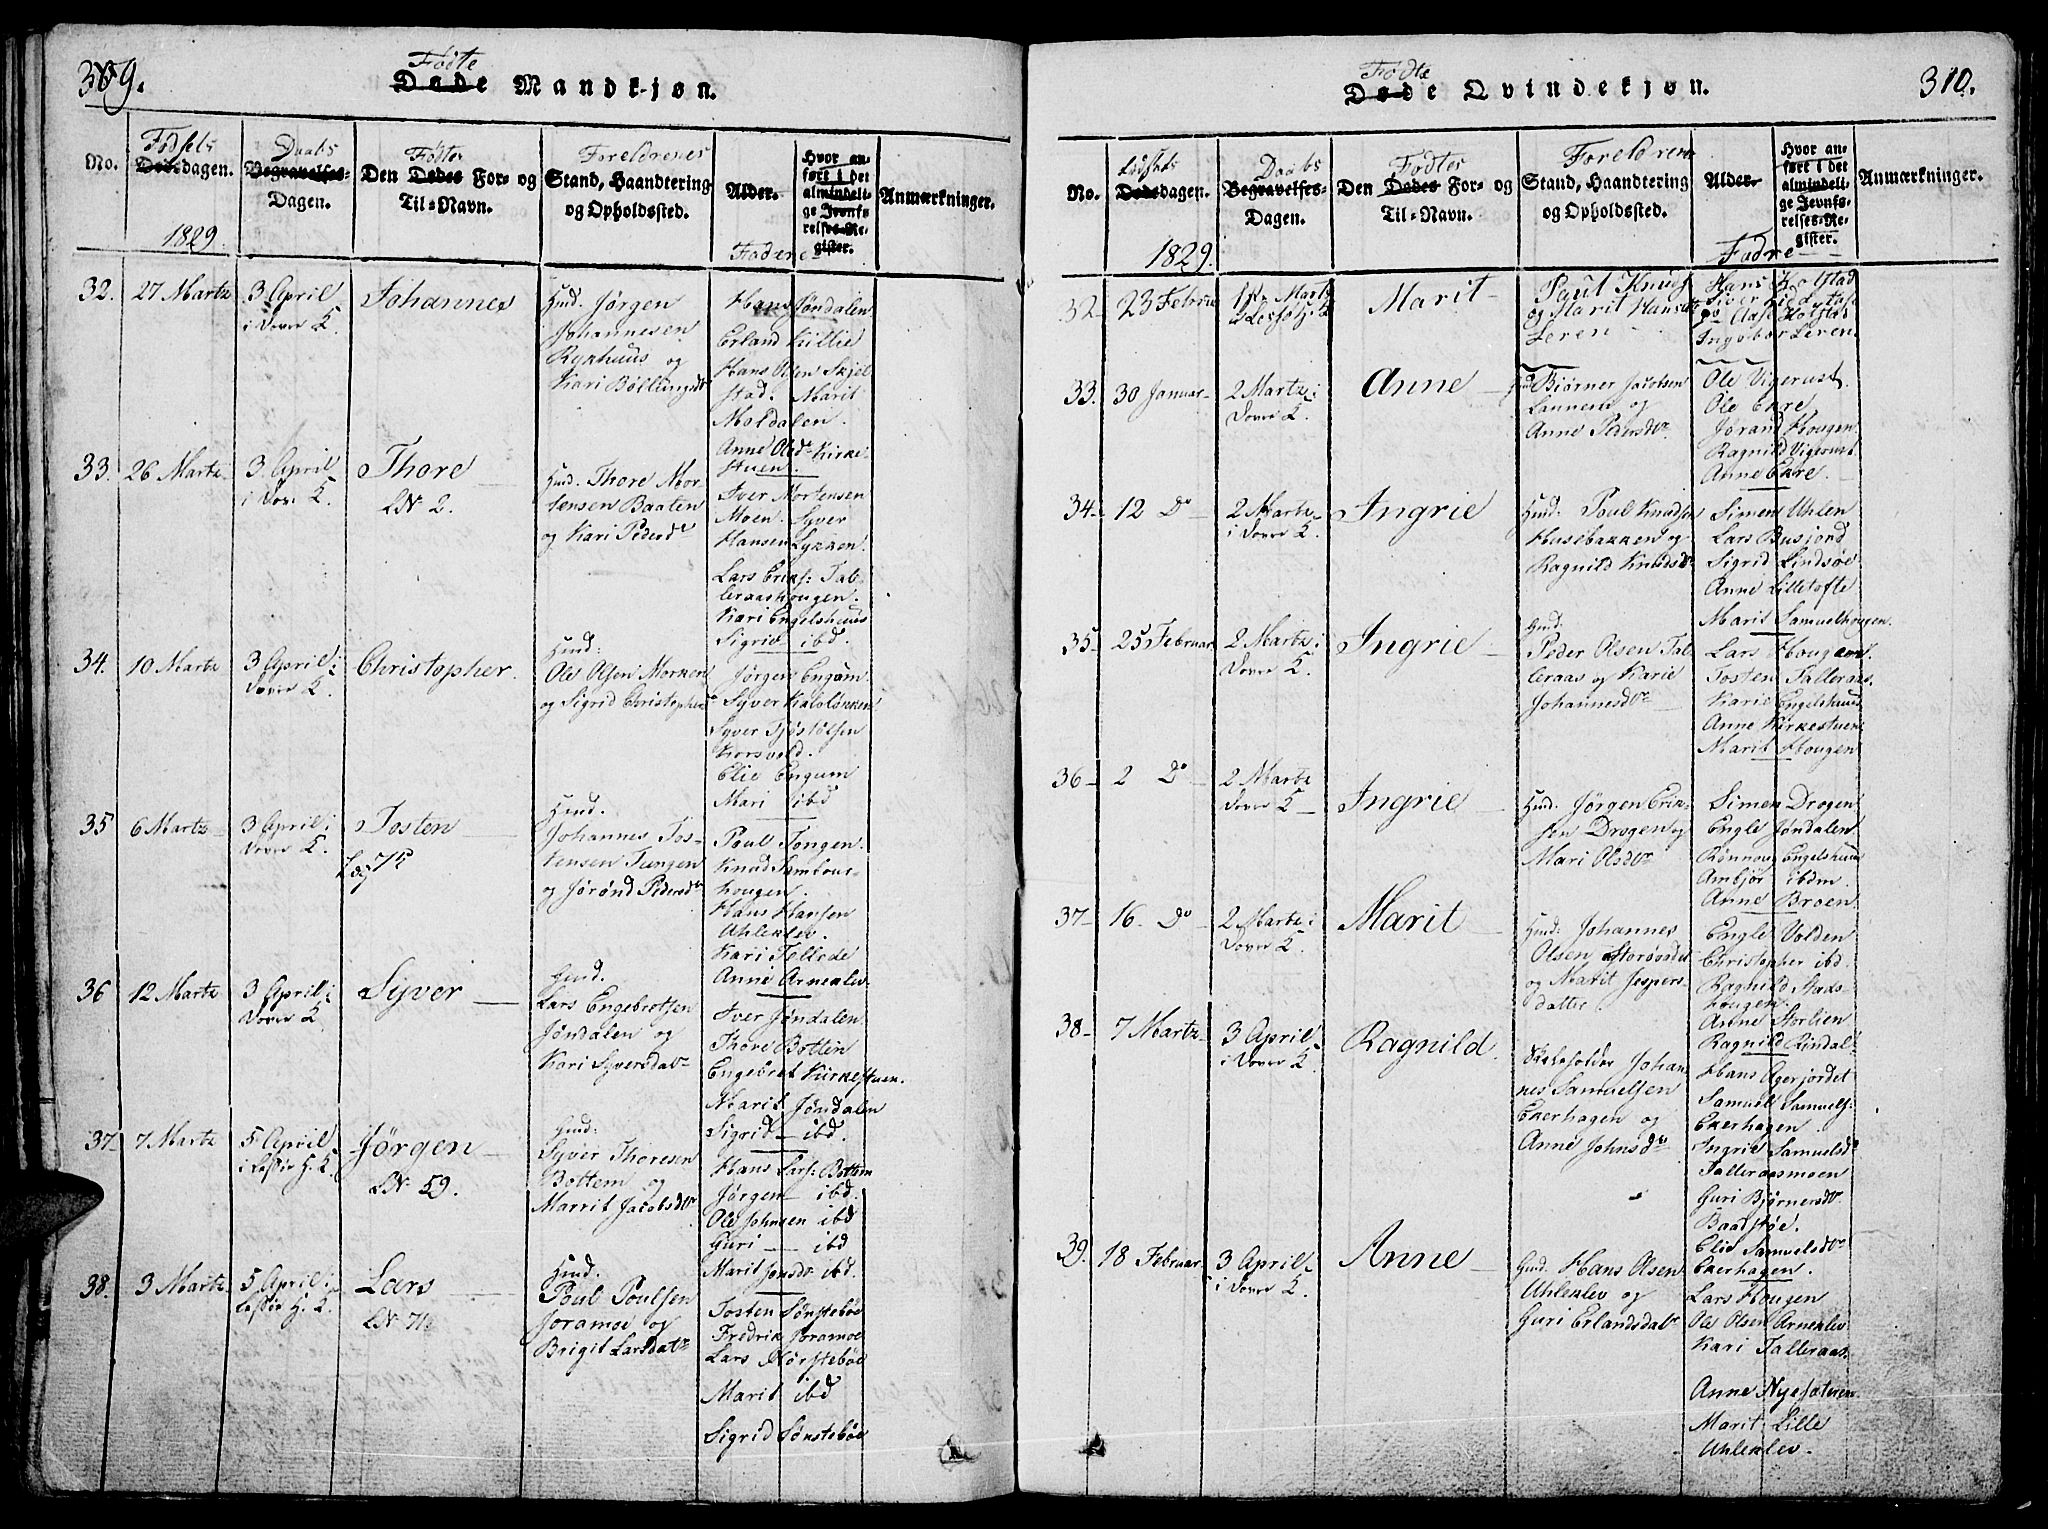 309.
Fødte
Døde Mandkjøn.
No.
Fødsels
Dødsdagen.
1829.
Daabs
Begravelses-
Dagen.
Fødtes
Den Dødes For- og
Til-Navn.
Foreldrenes
Stand, Haandtering
og Opholdssted.
Alder.
Fadere
Hvor an-
ført i det
almindeli-
ge Jevnfø-
relses-Re-
gister.
Anmærkninger.
32.
27 Martz
3 April
i Dovre K.
Johannes
Hmd. Jørgen
Johannesen
Rykhuus og
Kari Bottlingsdr
Hans Jøndalen
Erland Killie
Hans Olsen Skjel
stad. Marit
Moldalen.
Anne Olsdr Kirke-
stuen.
33.
26 Martz
3 April
i Dov. K.
Thore
LN 2.
Hmd. Thore Mor-
tensen Baaten
og Kari Pedersdr
Iver Mortensen
Moen. Syver
Hansen Lykken.
Lars Eriks: Tal-
leraashougen.
Kari Engelshuus
Sigrid ibd.
34.
10 Martz
3 April i
Dovre K.
Christopher.
Hmd:
Ole Olsen Morken
og Sigrid Christophersdr
Jørgen Engum.
Syver Kaloløkken
Syver Tjøstolsen
Korsvold.
Elie Engum
Mari ibd
35
6 Martz
3 April i
Dovre K.
Tosten
Hmd.
Johannes Tos-
tensen Tungen
og Jørønd Pedersdr
Poul Tongen.
Knud Tambous-
hougen.
Hans Hansen
Uhleklev.
Kari Tellede
Anne Arneklev.
36
12 Martz
3 April i
Dovre K.
Syver
Hmd.
Lars Engebretsen
Jøndalen og
Kari Syversdatr
Iver Jøndalen
Thore Botten
Engebret Kirkestuen.
Marit Jøndalen
Sigrid ibd.
37
7 Martz
5 April
i Lessie H. K.
Jørgen
LN 59.
Hmd:
Syver Thoresen
Bottem og
Marrit Jacobsdr
Hans Lars: Bottem
Jørgen ibd.
Ole Johnsen ibd
Guri ibd
Marit Jonsdr ibd.
38.
3 Martz
5 April i
Lessie H. K.
Lars
LN 71
Hmd.
Poul Poulsen
Joramoe og
Brigit Larsdatr
Tosten Sønstebøe
Fredrik Joramoe
Lars Nørstebøe
Marit ibd
Sigrid Sønstebøe
310.
Fødte
Døde Qvindekjøn.
No.
Fødsels
Dødsdagen.
1829.
Daabs
Begravelses-
Dagen.
Fødtes
Den Dødes For- og
Til-Navn.
Foreldrene
Stand, Haandtering
og Opholdssted.
Alder.
Fadre
Hvor an-
ført i det
almindeli-
ge Jevnfø-
relses-Re-
gister.
Anmærkninger.
32
23 Februar
1ste Martz
Marit
Paul Knuds
og Marit Hansdr
Leren
Hans Kolstad
Siver
Aase Kolstad
Ingebor Leren.
33.
30 Januar
2 Martz i
Dovre K.
Anne
Bjørner Jacobsen
Lannem og
Anne Pedersdr.
Ole Vigerust.
Ole Ekre
Jørand Hougen
Ragnild Vigerust
Anne Ekre.
34
12 Do
2 Martz
i Dovre K.
Ingrie
Hmd. Poul Knudsen
Husebakken og
Ragnild Knudsdr
Simen Uhlen
Lars Busjord
Sigrid Lindsøe
Anne Lilletofte
Marit Samuelhougen.
35
25 Februar
2 Martz i
Dovre K.
Ingrie
Hmd.
Peder Olsen Tal-
leraas og Karie
Johannesdr
Lars Hougen.
Tosten Talleraas.
Karie Engelshuus
Anne Kirkestuen
Marit Hougen
36
2 Do
2 Martz
Dovre K
Ingrie
Hmd. Jørgen Erik-
sen Drogen og
Mari Olsdr
Simen Drogen
Engle Jøndalen
Rønnou Engelshuus
Ambjør ibdm.
Anne Broen
37
16. Do
2 Martz i
Dovre K.
Marit
Hmd. Johannes
Olsen Storøvadet
og Marit Jespers
datter.
Engle Volden
Christopher ibd.
Ragnild Stads-
hougen.
Anne Storlien
Ragnild Rindal
38
7 Martz
3 April
i Dovre K.
Ragnild.
Johan-
nes Samuelsen
Ekerhagen og
Anne Johnsdr
Hans Agerjordet
Samuel Samuels:
Ekerhagen.
Ingrie Samuelsdr
Talleraasmoen
Guri Bjørnersdr
Baadstøe.
Elie Samuelsdr
Ekerhagen.
39.
18 Februar
3 April
i Dovre K.
Anne
Hmd. Hans Olsen
Uhleklev og
Guri Erlandsdatr
Lars Hougen
Ole Olsen Arneklev
Kari Talleraas.
Anne Nyesæteren
Marit Lille
Uhleklev.